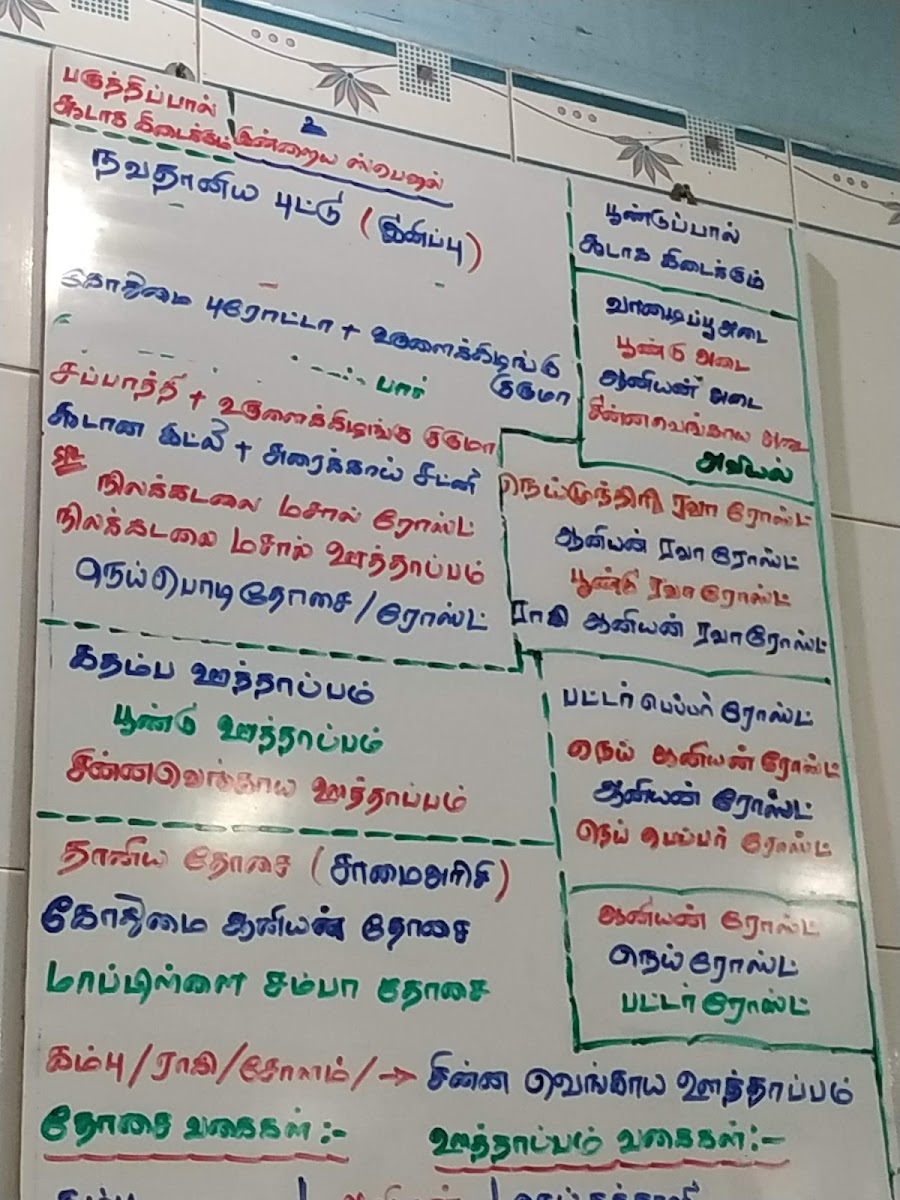 பருத்திப்பால்
சூடாக கிடைக்கும்
உ
இன்றைய ஸ்பெஷல்
நவதானிய புட்டு (இனிப்பு)
கோதுமை புரோட்டா + உருளைக்கிழங்கு
குருமா
சப்பாத்தி + உருளைக்கிழங்கு குருமா
சூடான இட்லி + சுரைக்காய் சட்னி
நிலக்கடலை மசால் ரோஸ்ட்
நிலக்கடலை மசால் ஊத்தாப்பம்
நெய்பொடி தோசை / ரோஸ்ட்
கதம்ப ஊத்தாப்பம்
பூண்டு ஊத்தாப்பம்
சின்னவெங்காய ஊத்தாப்பம்
தானிய தோசை (சாமைஅரிசி)
கோதுமை ஆனியன் தோசை
மாப்பிள்ளை சம்பா தோசை
பூண்டுப்பால்
சூடாக கிடைக்கும்
வாழைப்பூ அடை
பூண்டு அடை
ஆனியன் அடை
சின்னவெங்காய அடை
அவியல்
நெய்முந்திரி ரவா ரோஸ்ட்
ஆனியன் ரவா ரோஸ்ட்
பூண்டு ரவா ரோஸ்ட்
ராகி ஆனியன் ரவா ரோஸ்ட்
பட்டர் பெப்பர் ரோஸ்ட்
நெய் ஆனியன் ரோஸ்ட்
ஆனியன் ரோஸ்ட்
நெய் பெப்பர் ரோஸ்ட்
ஆனியன் ரோஸ்ட்
நெய் ரோஸ்ட்
பட்டர் ரோஸ்ட்
கம்பு / ராகி / சோளம் / → சின்ன வெங்காய ஊத்தாப்பம்
தோசை வகைகள் :- ஊத்தாப்பம் வகைகள் :-